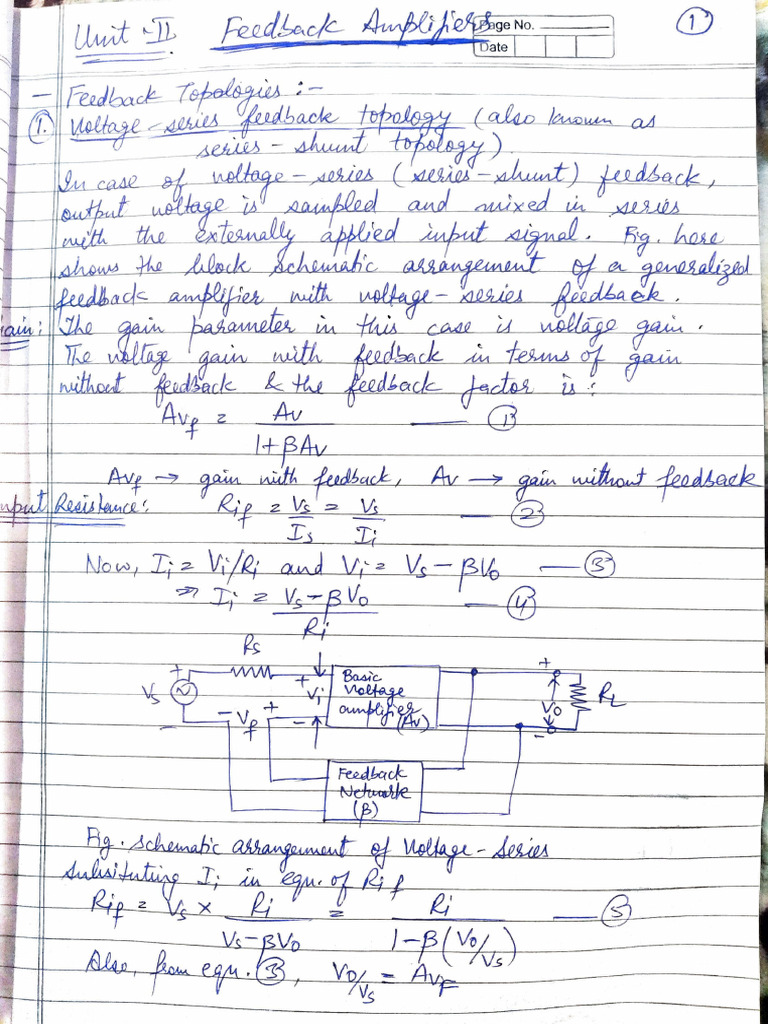 Unit-II Feedback Amplifiers
Page No.
Date
1
— Feedback Topologies :-
1. Voltage-series feedback topology (also known as
series-shunt topology).
In case of voltage-series (series-shunt) feedback,
output voltage is sampled and mixed in series
with the externally applied input signal. Fig. here
shows the block schematic arrangement of a generalized
feedback amplifier with voltage-series feedback.
ain: The gain parameter in this case is voltage gain.
The voltage gain with feedback in terms of gain
without feedback & the feedback factor is:
Avf = Av / (1+βAv) — 1
Avf → gain with feedback, Av → gain without feedback
nput Resistance: Rif = Vs/Is = Vs/Ii — 2
Now, Ii = Vi/Ri and Vi = Vs - βVo — 3
⇒ Ii = (Vs - βVo)/Ri — 4
Rs
+ Vs -
+ Vi -
Basic
Voltage
amplifier
(Av)
+ Vo -
RL
- Vf +
Feedback
Network
(β)
Fig. schematic arrangement of Voltage-Series
Subsituting Ii in equn. of Rif
Rif = Vs × Ri/(Vs-βVo) = Ri/(1-β(Vo/Vs)) — 5
Also, from equn. 3, Vo/Vs = AvF